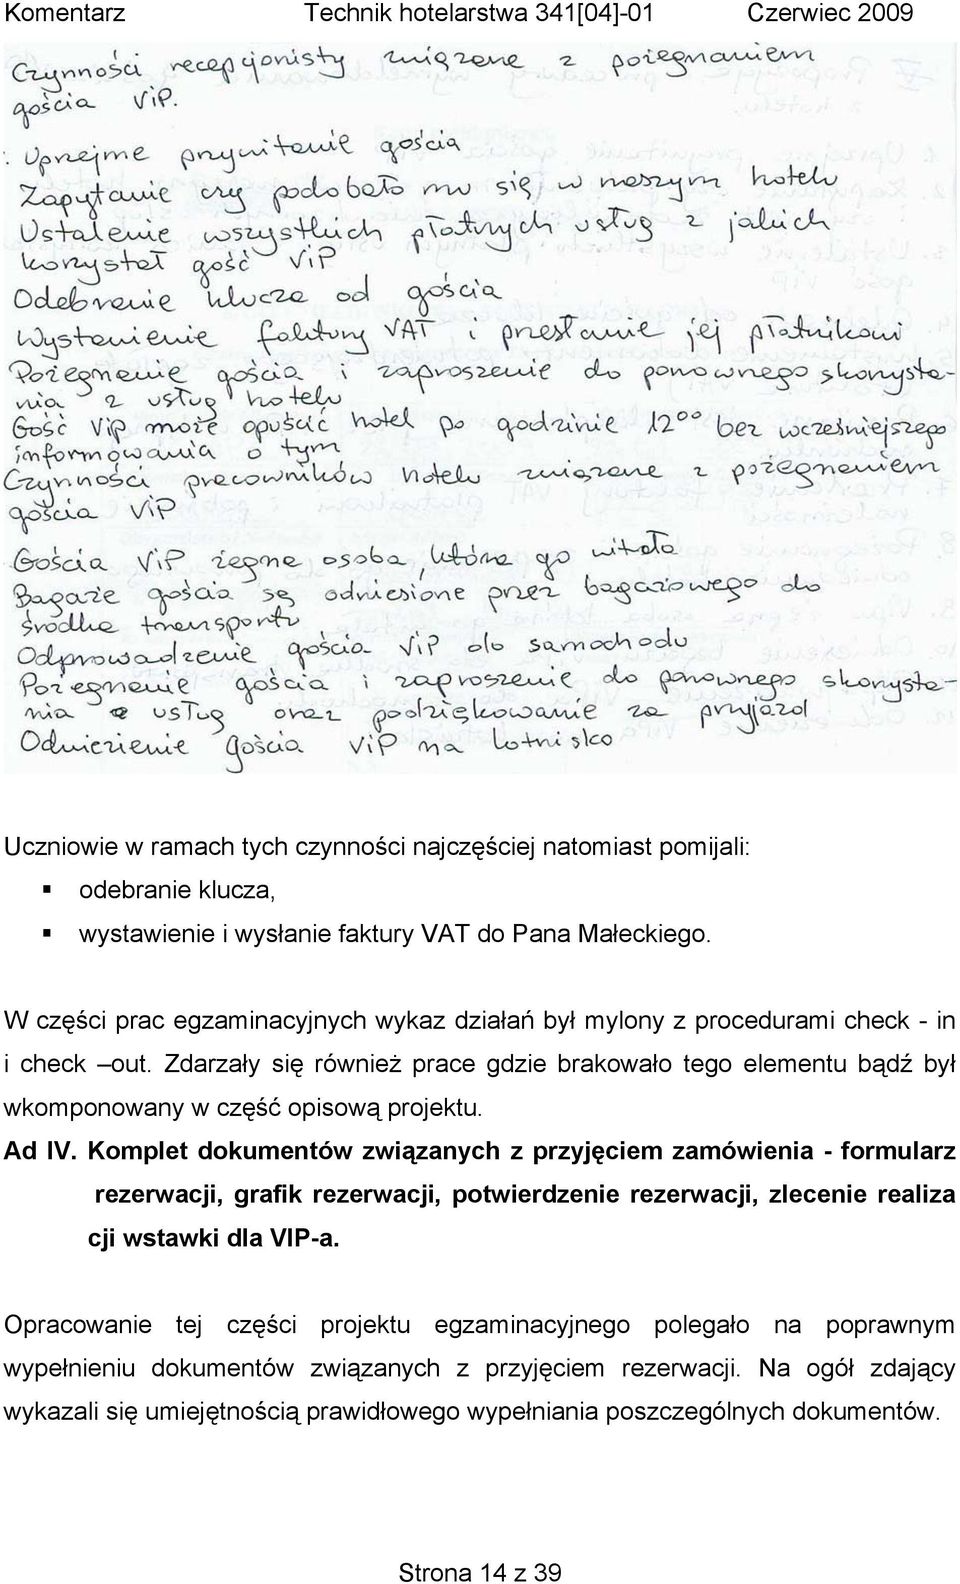 Komentarz Technik hotelarstwa 341[04]-01 Czerwiec 2009
Czynności recepcjonisty związane z pożegnaniem
gościa ViP.
Uprzejme przywitanie gościa
Zapytanie czy podobało mu się w naszym hotelu
Ustalenie wszystkich płatnych usług z jakich
korzystał gość ViP
Odebranie klucza od gościa
Wystawienie faktury VAT i przesłanie jej płatnikowi
Pożegnanie gościa i zaproszenie do ponownego skorzysta-
nia z usług hotelu
Gość Vip może opuścić hotel po godzinie 12⁰⁰ bez wcześniejszego
informowania o tym
Czynności pracowników hotelu związane z pożegnaniem
gościa ViP
Gościa ViP żegna osoba, która go witała
Bagaże gościa są odniesione przez bagażowego do
środka transportu
Odprowadzenie gościa ViP do samochodu
Pożegnanie gościa i zaproszenie do ponownego skorzysta-
nia z usług oraz podziękowanie za przyjazd
Odwiezienie gościa ViP na lotnisko
Uczniowie w ramach tych czynności najczęściej natomiast pomijali:
▪ odebranie klucza,
▪ wystawienie i wysłanie faktury VAT do Pana Małeckiego.
W części prac egzaminacyjnych wykaz działań był mylony z procedurami check - in
i check –out. Zdarzały się również prace gdzie brakowało tego elementu bądź był
wkomponowany w część opisową projektu.
Ad IV. Komplet dokumentów związanych z przyjęciem zamówienia - formularz
rezerwacji, grafik rezerwacji, potwierdzenie rezerwacji, zlecenie realiza
cji wstawki dla VIP-a.
Opracowanie tej części projektu egzaminacyjnego polegało na poprawnym
wypełnieniu dokumentów związanych z przyjęciem rezerwacji. Na ogół zdający
wykazali się umiejętnością prawidłowego wypełniania poszczególnych dokumentów.
Strona 14 z 39